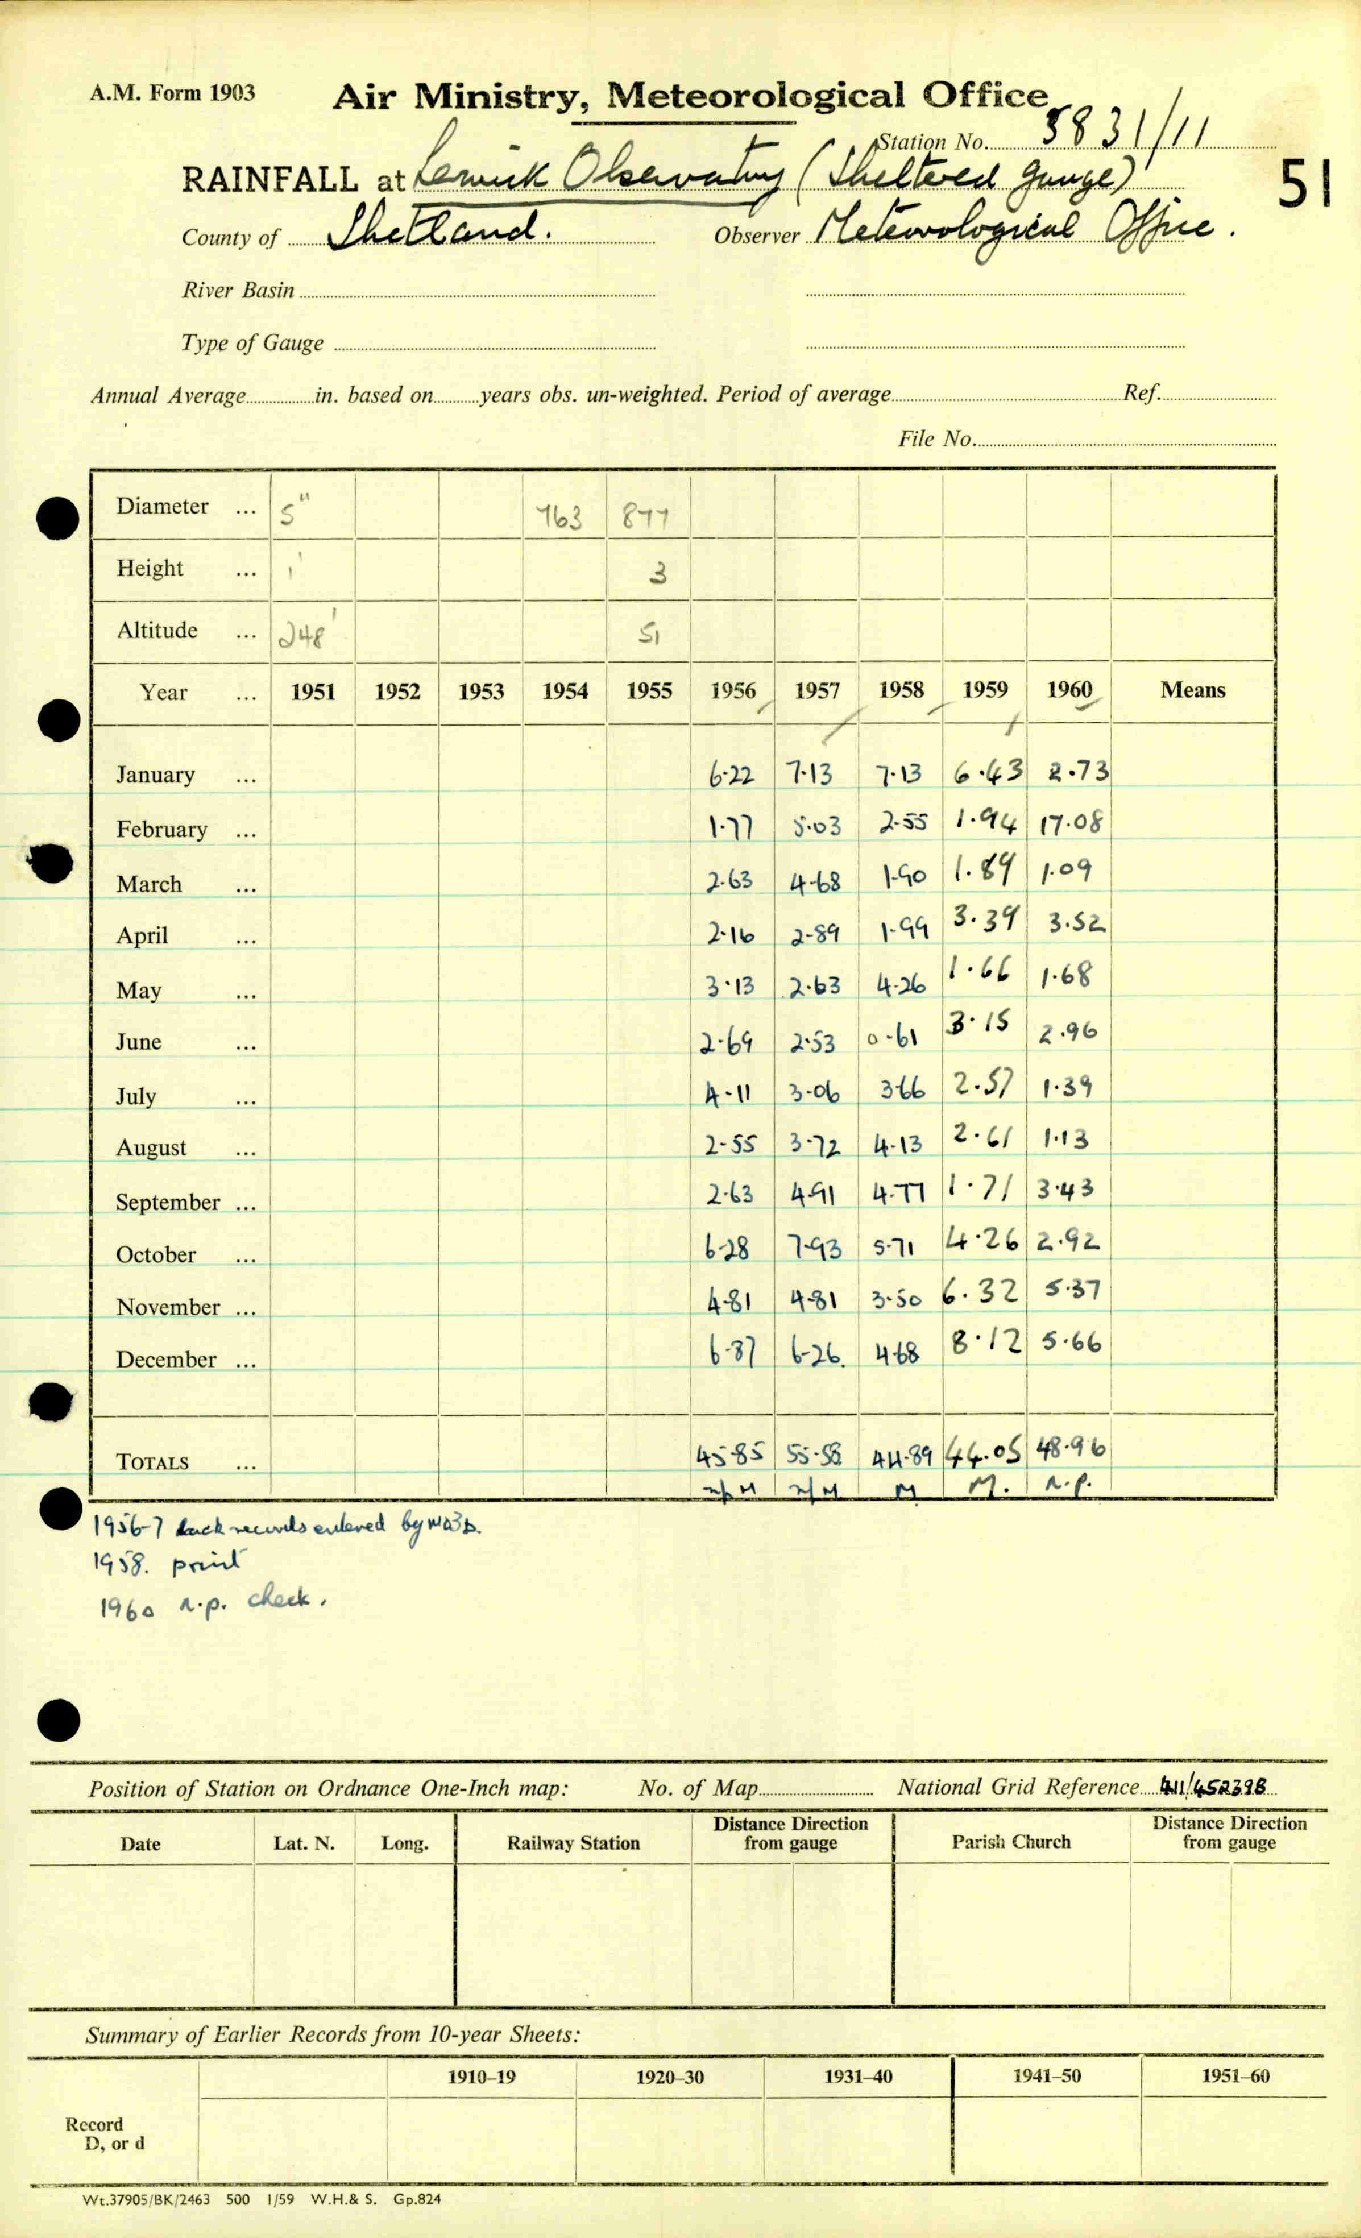 A.M. Form 1903
Air Ministry, Meteorological Office
Station No. 3831/11
RAINFALL at Lerwick Observatory (Sheltered gauge)
51
County of Shetland. Observer Meteorological Office.
River Basin
Type of Gauge
Annual Average in. based on years obs. un-weighted. Period of average Ref.
File No.
Diameter ... 5" 763 877
Height ... 1' 3
Altitude ... 248' 51
Year ... 1951 1952 1953 1954 1955 1956 1957 1958 1959 1960 Means
January ... 6.22 7.13 7.13 6.43 2.73
February ... 1.77 5.03 2.55 1.94 17.08
March ... 2.63 4.68 1.90 1.89 1.09
April ... 2.16 2.89 1.99 3.39 3.52
May ... 3.13 2.63 4.26 1.66 1.68
June ... 2.69 2.53 0.61 3.15 2.96
July ... 4.11 3.06 3.66 2.57 1.39
August ... 2.55 3.72 4.13 2.61 1.13
September ... 2.63 4.91 4.77 1.71 3.43
October ... 6.28 7.93 5.71 4.26 2.92
November ... 4.81 4.81 3.50 6.32 5.37
December ... 6.87 6.26 4.68 8.12 5.66
TOTALS ... 45.85 55.58 44.89 44.05 48.96
M M. n.p.
1956-7 back records entered by
1958. print
1960 n.p. check.
Position of Station on Ordnance One-Inch map: No. of Map National Grid Reference 411/452398
Date Lat. N. Long. Railway Station Distance Direction from gauge Parish Church Distance Direction from gauge
Summary of Earlier Records from 10-year Sheets:
1910–19 1920–30 1931–40 1941–50 1951–60
Record
D, or d
Wt.37905/BK/2463 500 1/59 W.H.& S. Gp.824